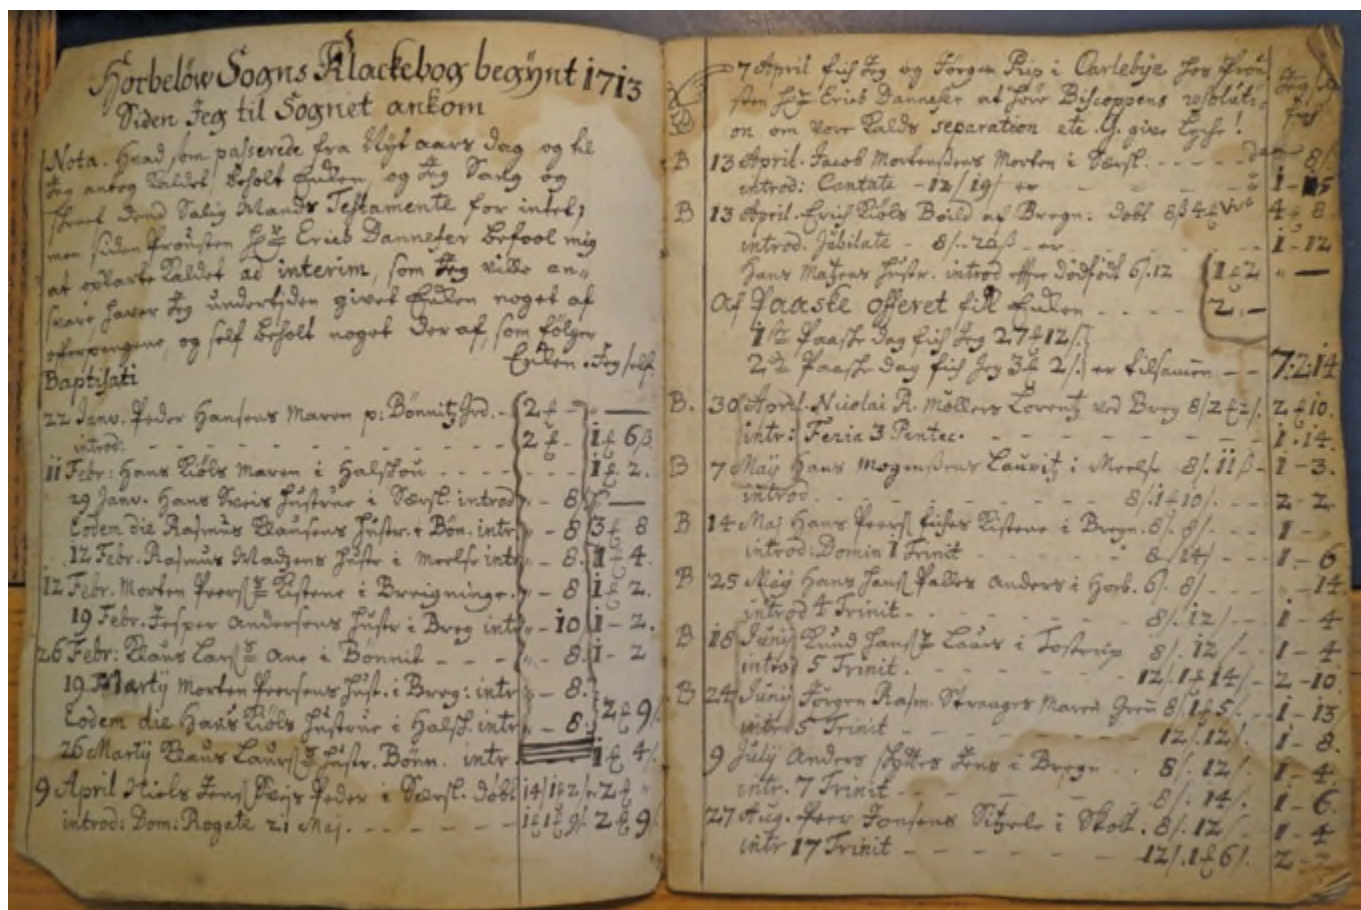 Horbelöw Sogns Klackebog begÿnt 1713
Siden Jeg til Sognet ankom
Nota. Hvad som passerede fra Nÿt aars dag og til
Jeg antog Kaldet, beholt Enken, og Jeg Sang og
skreef dend Salig Mands Testamente for intet;
men siden Prousten Hr Erich Dannefer befool mig
at opvarte Kaldet ad interim, som Jeg vilde an-
svare, haver Jeg undertiden givet Enken noget af
offerpengene, og self beholt noget der af, som følger
Enken. Jeg self.
Baptisati
22 Janv. Peder Hansens Maren p: Bönnitz Jrd. - 2 -
introd: - 2 - 1 6 ß
11 Febr: Hans Kiöls Maren i Halskou - 1 2.
29 Janv. Hans Hustrue i introd - 8
Eodem die Rasmus Klausens Hustr. intr - 8 3 8
12 Febr. Rasmus Madzens Hustr i Meelse intr - 8. 1 4.
12 Febr. Morten Peers Kistene i Breigninge. - 8 1 2.
19 Febr. Jesper Andersens Hustr i Breg intr - 10 1 - 2.
26 Febr: Klaus Lars Ane i Bönnit - - - 8. 1 - 2
19 Martÿ Morten Peersens Hust. i Breg: intr - 8.
Eodem die Hans Kiöls Hustrue i Halsk. intr - 8. 2 9
26 Martÿ Klaus Laurs Hustr. Bönn. intr 1 4
9 April Niels Jens Peder i döbt 14 2
introd: Dom: Rogate 21 Maj. - - - 2 9
7 April fich Jeg og Jörgen Prip i Carlebÿe hos Prou
sten Hr Erich Dannefer at höre Biscoppens resoluti-
on om vore Kalds separation etc. G. give Lyche!
B 13 April. Jacob Mortensens Morten i - - - 8
introd: Cantate - 12/ 19/ er - - - 1 - 5
B 13 April. Erich Kiöls Boild af Bregn: döbt 8 4 8
introd. Jubilate - 8/. 20 ß - er - - 1 - 12
Hans Matzens Hustr. introd effter dödfödt 6/. 12 1 2
Af Paaske offeret fik Enken - - - - 2. -
1ste Paaske dag fich Jeg 27 12/.
2den Paaske dag fich Jeg 3 2/. er tilsamen - - 7. 2. 14
B. 30 April. Nicolai R. Möllers Lorentz ved Breg 8/ 2 2/. 2 10.
intr: Feria 3 Pentec. - - - 1 . 14.
B 7 Maÿ Hans Mogensens Lauritz i Meelse 8/. 11 ß - 1 - 3.
introd - - - 8/. 1 10/. - - 2 - 2.
B 14 Maj Hans Peers Kistene i Bregn. 8/. 8/. - - 1 -
introd: Domin 1 Trinit - - 8/ 14/ - - 1 - 6
B 25 Maÿ Hans Hans Palles Anders i Horb. 6/. 8/ - - - 14
introd 4 Trinit - - - 8/. 12/ - - 1 - 4
B 18 Junÿ Knud Hans Laurs i Tostrup 8/. 12 - - 1 - 4
introd 5 Trinit. - - - 12/. 1 14/ - 2 - 10
B 24 Junÿ Jörgen Rasm. Stranges Maren 8/ 1 5/. - 1 - 13
introd 5 Trinit - - - 12/. 12/. 1 - 8.
9 Julÿ Anders Skÿttes Jens i Bregn - - 8/. 12/. 1 - 4
intr. 7 Trinit - - - 8/. 14/. 1 - 6.
27 Aug. Peer Jonsens i 8/. 12/ - 1 - 4
intr 17 Trinit - - - 12/. 1 6/. 2 -